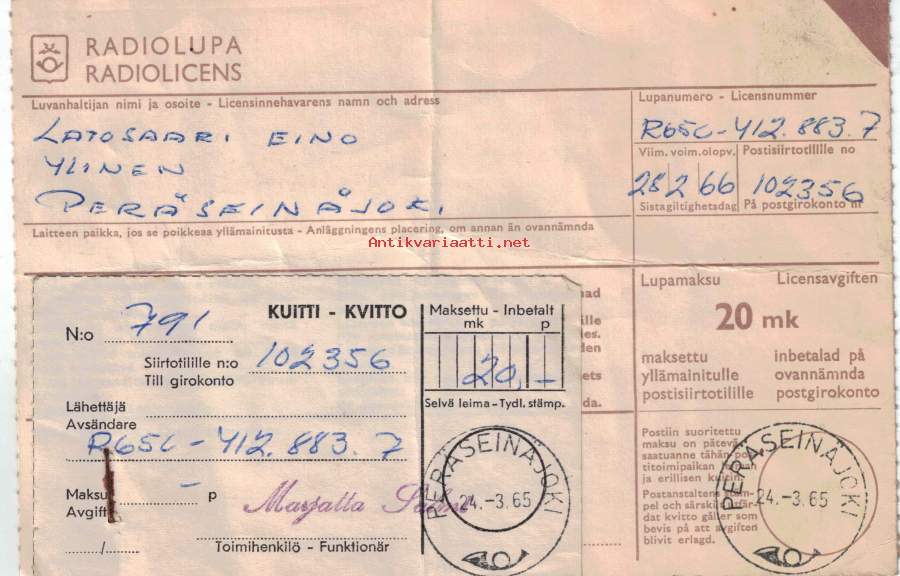 RADIOLUPA
RADIOLICENS
Luvanhaltijan nimi ja osoite - Licensinnehavarens namn och adress
LATOSAARI EINO
YLINEN
PERÄSEINÄJOKI
Laitteen paikka, jos se poikkeaa yllämainitusta - Anläggningens placering, om annan än ovannämnda
Lupanumero - Licensnummer
R65C-412.883.7
Viim. voim.olopv. Postisiirtotilille no
28 2 66 102356
Sista giltighetsdag På postgirokonto nr
Antikvariaatti.net
Lupamaksu Licensavgiften
20 mk
maksettu inbetalad på
yllämainitulle ovannämnda
postisiirtotilille postgirokonto
Postiin suoritettu
maksu on pätevä
saatuanne tähän
titoimipaikan leiman
ja erillisen kuitin.
Postanstaltens
pel och särskilt
dat kvitto gäller som
bevis på att avgiften
blivit erlagd.
PERÄSEINÄJOKI
24.-3.65
KUITTI - KVITTO
N:o 791
Siirtotilille n:o 102356
Till girokonto
Lähettäjä
Avsändare
R65C-412.883.7
Maksu - p
Avgift
Marjatta
Toimihenkilö - Funktionär
Maksettu - Inbetalt
mk p
20,-
Selvä leima - Tydl. stämp.
PERÄSEINÄJOKI
24.-3.65